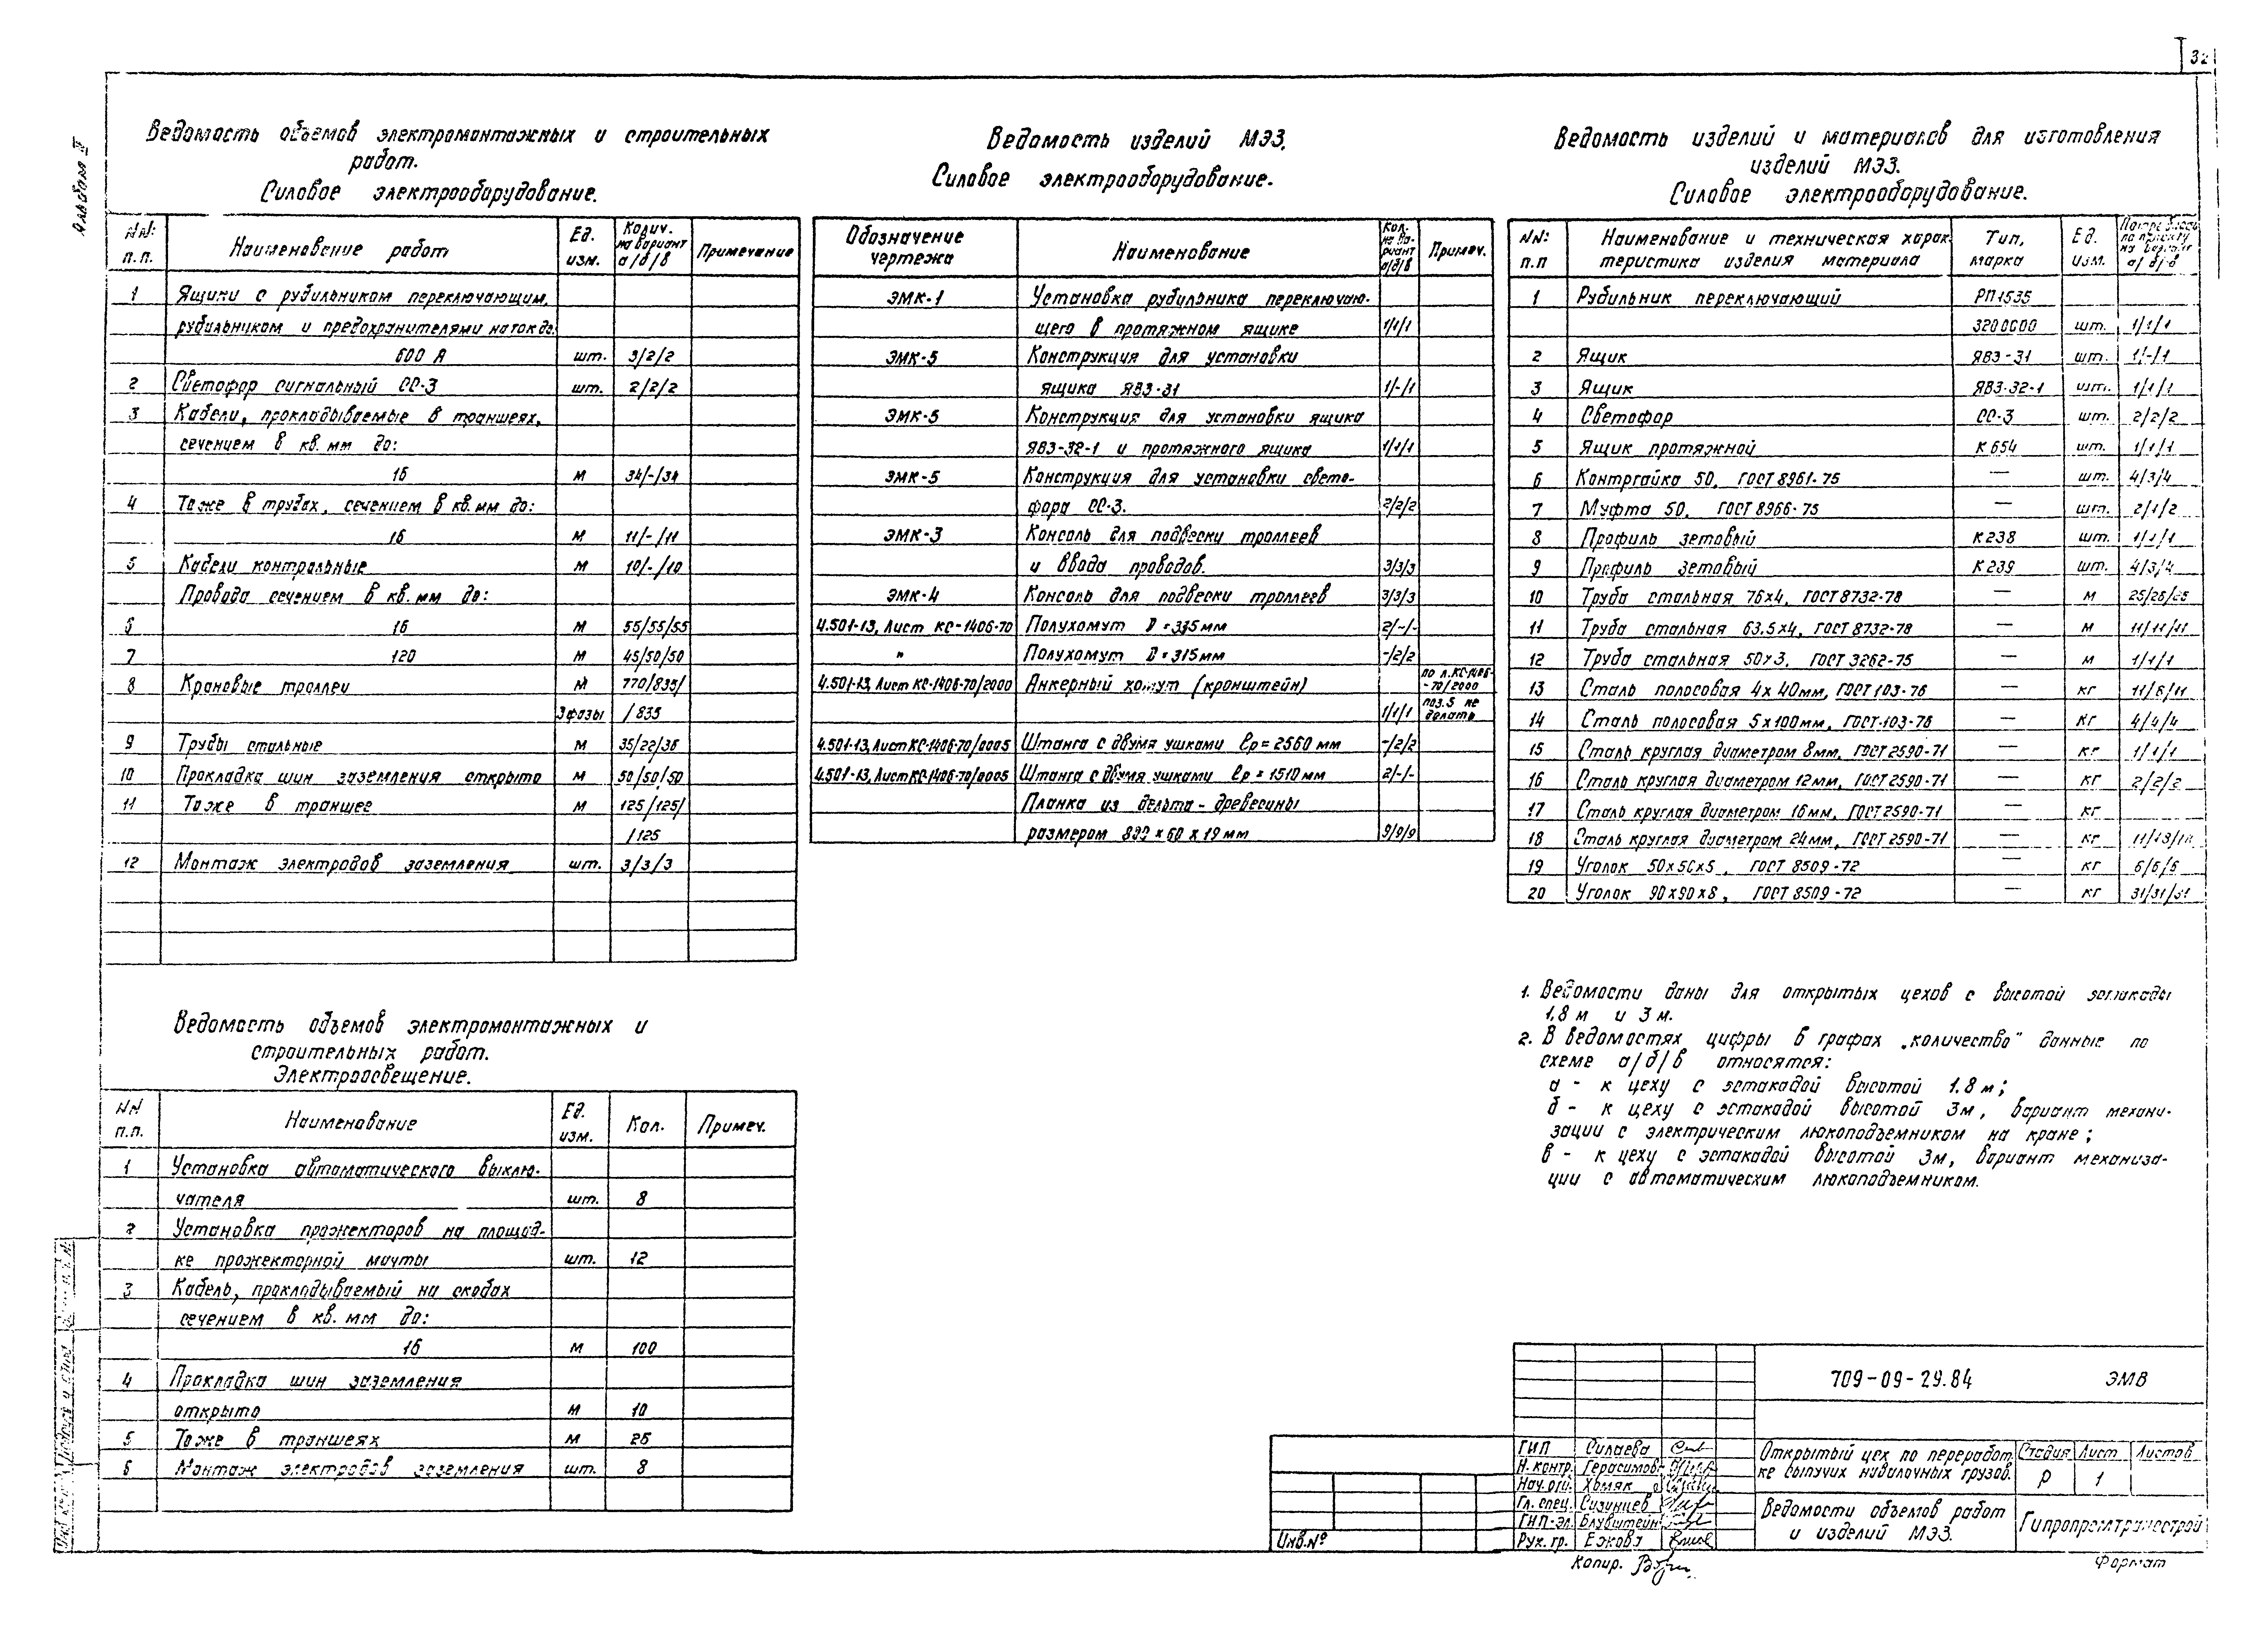 32
Альбом IV
Ведомость объемов электромонтажных и строительных
работ.
Силовое электрооборудование.
NN: п.п. Наименование работ Ед. изм. Колич. на вариант а/б/в Примечание
1 Ящики с рубильником переключающим,
рубильником и предохранителями на ток до
600 А шт. 3/2/2
2 Светофор сигнальный СС-3 шт. 2/2/2
3 Кабели, прокладываемые в траншеях,
сечением в кв.мм до:
16 м 34/-/34
4 Тоже в трубах, сечением в кв.мм до:
16 м 11/-/11
5 Кабели контрольные м 10/-/10
Провода сечением в кв.мм до:
6 16 м 55/55/55
7 120 м 45/50/50
8 Крановые троллеи м 770/835/
3 фазы /835
9 Трубы стальные м 35/22/36
10 Прокладка шин заземления открыто м 50/50/50
11 Тоже в траншее м 125/125/
/125
12 Монтаж электродов заземления шт. 3/3/3
Ведомость изделий МЭЗ.
Силовое электрооборудование.
Обозначение чертежа Наименование Кол. на вариант а/б/в Примеч.
ЭМК-1 Установка рубильника переключаю-
щего в протяжном ящике 1/1/1
ЭМК-5 Конструкция для установки
ящика ЯВЗ-31 1/-/1
ЭМК-5 Конструкция для установки ящика
ЯВЗ-32-1 и протяжного ящика 1/1/1
ЭМК-5 Конструкция для установки свето-
фора СС-3. 2/2/2
ЭМК-3 Консоль для подвески троллеев
и ввода проводов. 3/3/3
ЭМК-4 Консоль для подвески троллеев 3/3/3
4.501-13, Лист КС-1406-70 Полухомут D = 335 мм 2/-/-
" Полухомут D = 315 мм -/2/2
4.501-13, Лист КС-1406-70/2000 Анкерный хомут (кронштейн) по л. КС-1406-
-70/2000
1/1/1 поз. 5 не
делать
4.501-13, Лист КС-1406-70/0005 Штанга с двумя ушками ℓр = 2560 мм -/2/2
4.501-13, Лист КС-1406-70/0005 Штанга с двумя ушками ℓр = 1510 мм 2/-/-
Планка из дельта - древесины
размером 899 х 60 х 19 мм 9/9/9
Ведомость изделий и материалов для изготовления
изделий МЭЗ.
Силовое электрооборудование.
NN: п.п Наименование и техническая харак- теристика изделия материала Тип, марка Ед. изм. по проекту на вариант а/б/в
1 Рубильник переключающий РП1535
320000 шт. 1/1/1
2 Ящик ЯВЗ-31 шт. 1/-/1
3 Ящик ЯВЗ-32-1 шт. 1/1/1
4 Светофор СС-3 шт. 2/2/2
5 Ящик протяжной К 654 шт. 1/1/1
6 Контргайка 50, ГОСТ 8961-75 — шт. 4/3/4
7 Муфта 50, ГОСТ 8966-75 — шт. 2/1/2
8 Профиль зетовый К 238 шт. 1/1/1
9 Профиль зетовый К 239 шт. 4/3/4
10 Труба стальная 76х4, ГОСТ 8732-78 — м 25/25/25
11 Труба стальная 63.5х4, ГОСТ 8732-78 — м 11/11/11
12 Труба стальная 50х3, ГОСТ 3262-75 — м 1/1/1
13 Сталь полосовая 4х40мм, ГОСТ 103-76 — кг 11/6/11
14 Сталь полосовая 5х100мм, ГОСТ-103-76 — кг 4/4/4
15 Сталь круглая диаметром 8мм, ГОСТ 2590-71 — кг 1/1/1
16 Сталь круглая диаметром 12мм, ГОСТ 2590-71 — кг 2/2/2
17 Сталь круглая диаметром 16мм, ГОСТ 2590-71 — кг
18 Сталь круглая диаметром 24мм, ГОСТ 2590-71 — кг
19 Уголок 50х50х5, ГОСТ 8509-72 — кг 6/6/6
20 Уголок 90х90х8, ГОСТ 8509-72 — кг 31/31/31
1. Ведомости даны для открытых цехов с высотой эстакады
1,8 м и 3 м.
2. В ведомостях цифры в графах „количество" данные по
схеме а/б/в относятся:
а - к цеху с эстакадой высотой 1.8 м;
б - к цеху с эстакадой высотой 3м, вариант механи-
зации с электрическим люкоподъемником на кране;
в - к цеху с эстакадой высотой 3м, вариант механиза-
ции с автоматическим люкоподъемником.
Ведомость объемов электромонтажных и
строительных работ.
Электроосвещение.
NN п.п. Наименование Ед. изм. Кол. Примеч.
1 Установка автоматического выклю-
чателя шт. 8
2 Установка прожекторов на площад-
ке прожекторной мачты шт. 12
3 Кабель, прокладываемый на скобах
сечением в кв.мм до:
16 м 100
4 Прокладка шин заземления
открыто м 10
5 Тоже в траншеях м 25
6 Монтаж электродов заземления шт. 8
709-09-29.84 ЭМВ
ГИП Силаева
Н. контр. Герасимов
Нач. отд. Хомяк
Гл. спец. Сизинцев
ГИП-эл. Блувштейн
Рук. гр. Ежова
Открытый цех по переработ-
ке сыпучих навалочных грузов.
Стадия Лист Листов
Р 1
Ведомости объемов работ
и изделий МЭЗ.
Гипропромтрансстрой
Инв.№
Копир.
Формат